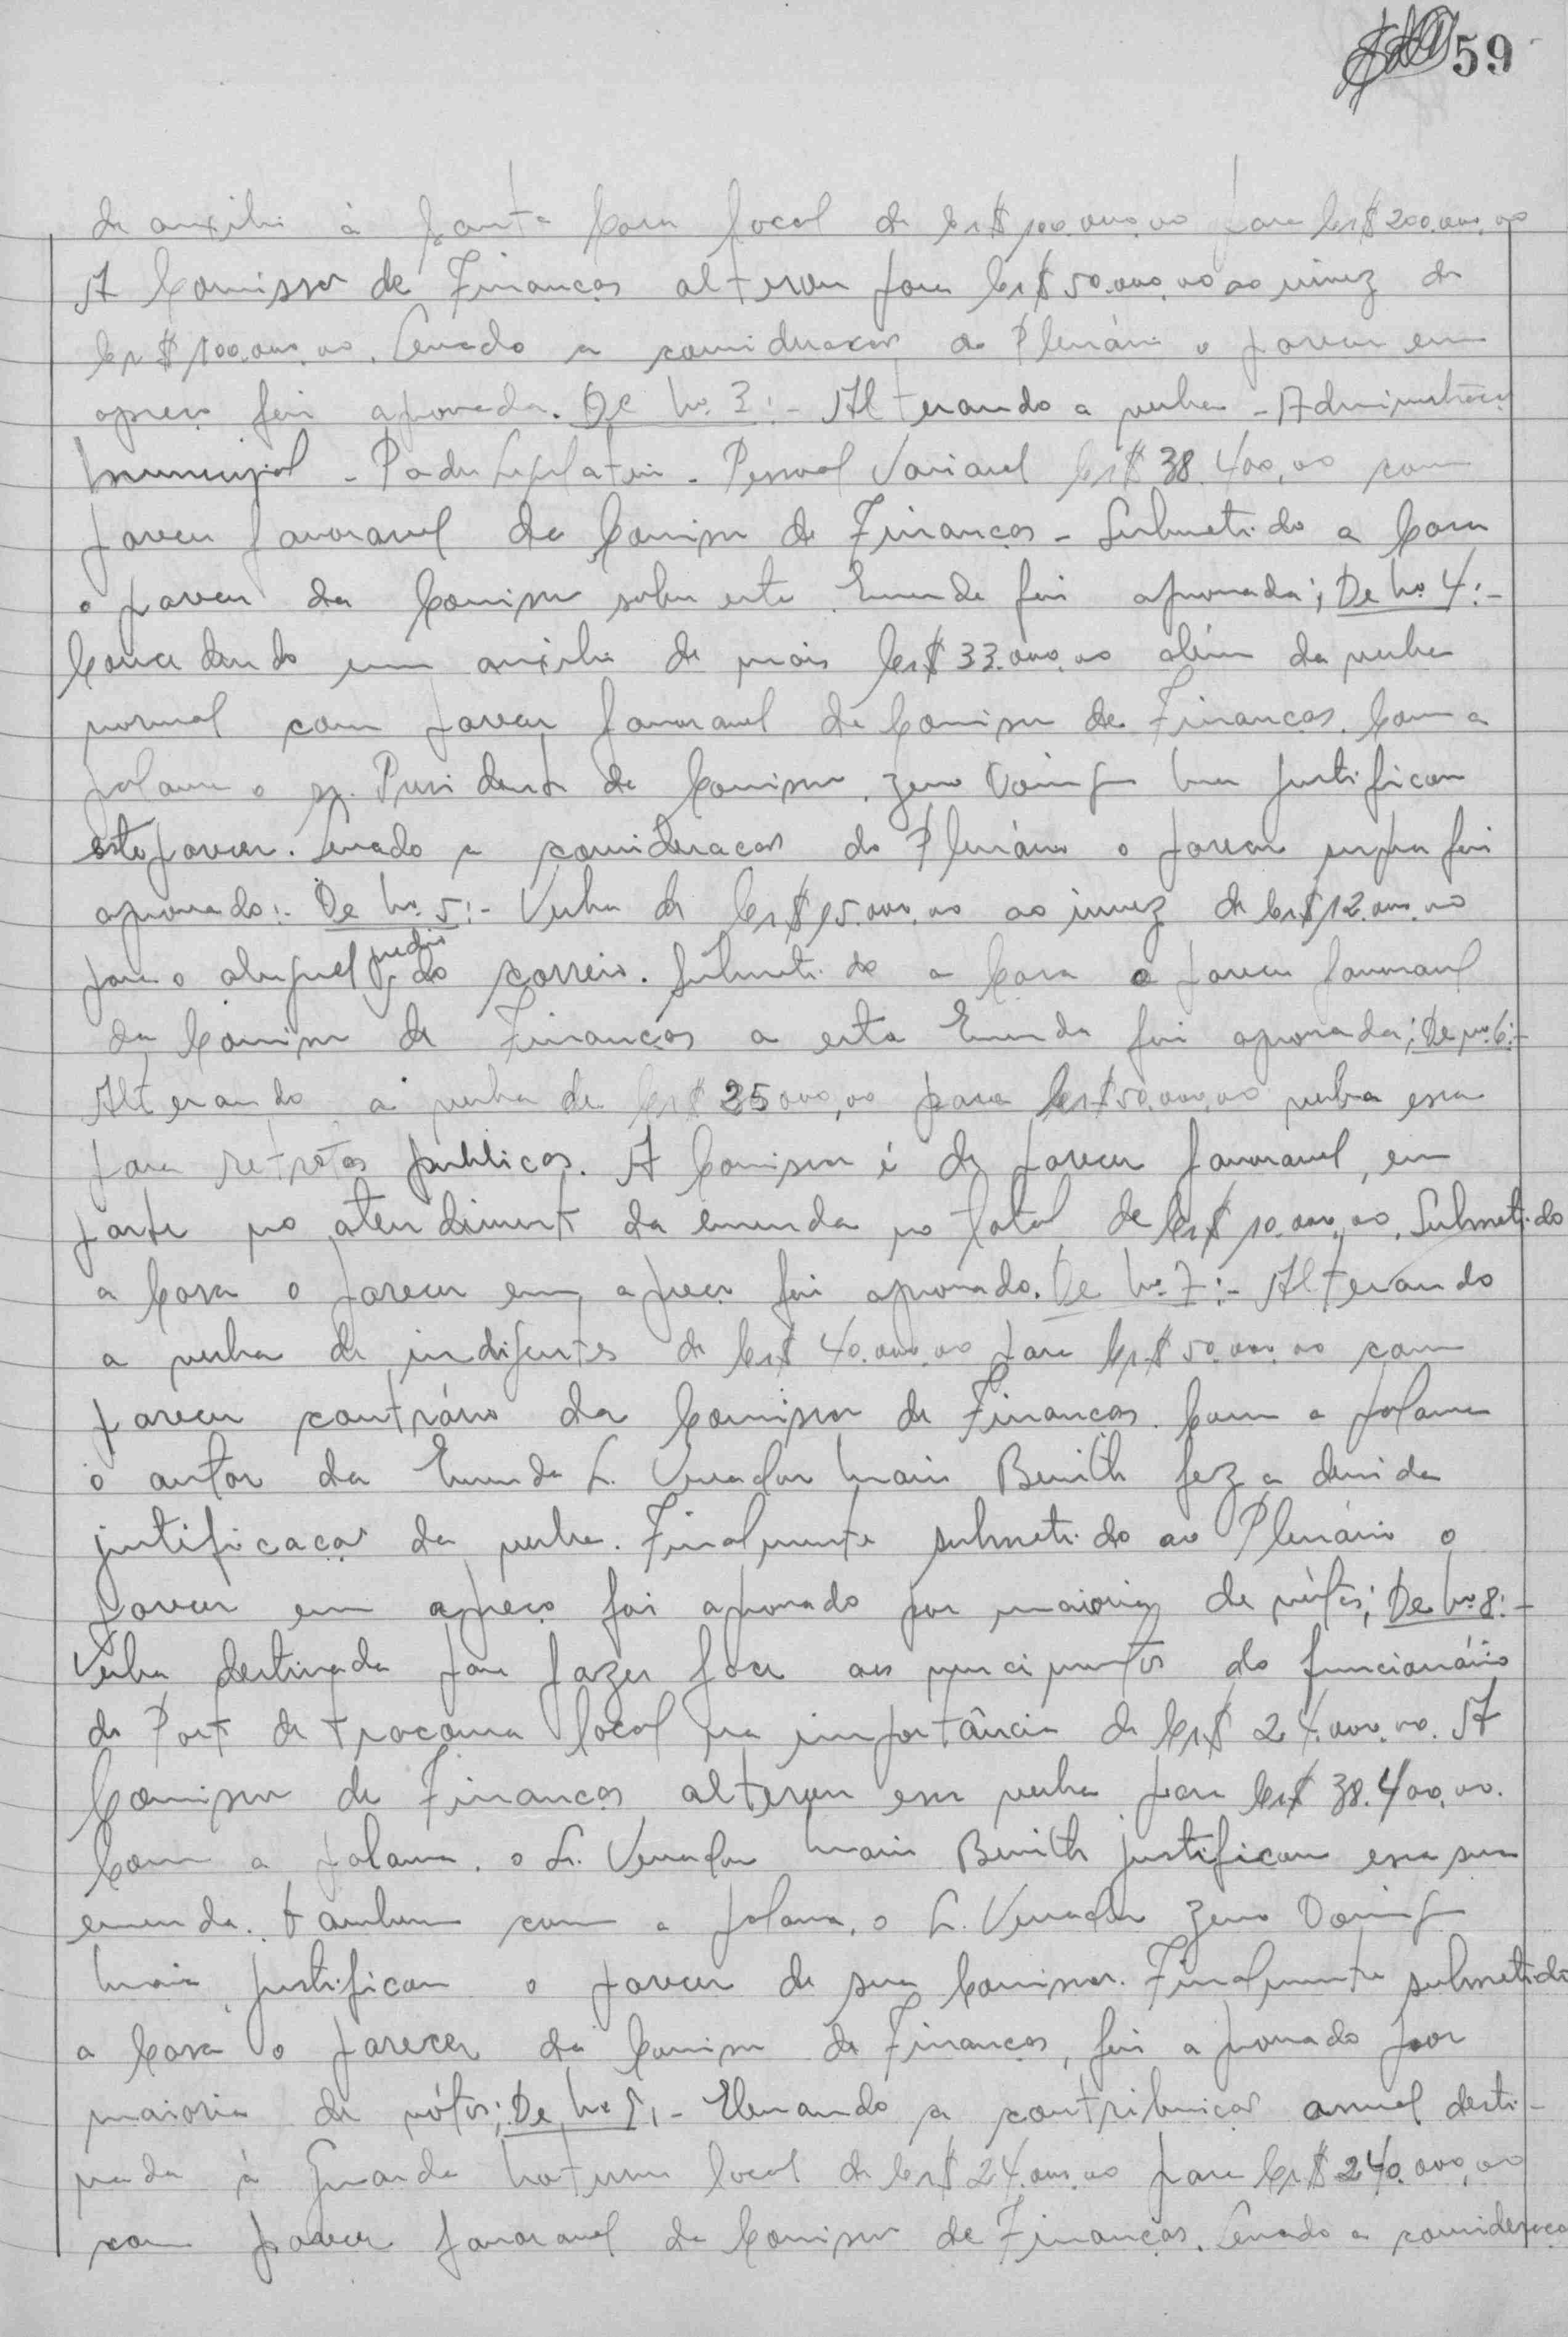 59
de auxilio à Santa Casa local de Cr$ 100.000,00 para Cr$ 200.000,00
A Comissão de Finanças alterou para Cr$ 50.000,00 ao invez de
Cr$ 100.000,00. Levado a consideracão do Plenário o parecer em
apreço foi aprovada. De No. 3:- Alterando a verba - Administração
Municipal - Poder Legislativo - Pessoal Variavel Cr$ 38.400,00 com
parecer favoravel da Comissão de Finanças - Submetido a Casa
o parecer da Comissão sobre esta Emenda foi aprovada; De No. 4:-
Concedendo um auxilio de mais Cr$ 33.000,00 além da verba
normal com parecer favoravel da Comissão de Finanças. Com a
palavra o sr. Presidente da Comissão, Zeno Maia justificou
este parecer. Levado a consideracao do Plenário o parecer supra foi
aprovado:- De No. 5:- Verba de Cr$ 15.000,00 ao invez de Cr$ 12.000,00
para o aluguel predio do correio. Submetido a Casa o parecer favoravel
da Comissão de Finanças a esta Emenda foi aprovada; De no. 6:-
Alterando a verba de Cr$ 25.000,00 para Cr$ 50.000,00 verba essa
para retretas publicas. A Comissão é de parecer favoravel, em
parte no atendimento da emenda no total de Cr$ 10.000,00. Submetido
a Casa o parecer em apreço foi aprovado. De No. 7:- Alterando
a verba de indigentes de Cr$ 40.000,00 para Cr$ 50.000,00 com
parecer contrário da Comissão de Finanças. Com a palavra
o autor da Emenda Sr. Vereador Benith fez a devida
justificação da verba. Finalmente submetido ao Plenário o
parecer em apreço foi aprovado por maioria de vótos; De No. 8:-
Verba destinada para fazer face aos vencimentos do funcionário
do Posto de tracoma local na importância de Cr$ 24.000,00. A
Comissão de Finanças alterou essa verba para Cr$ 38.400,00.
Com a palavra, o Sr. Vereador Benith justificou essa sua
emenda. Tambem com a palavra, o Sr. Vereador Zeno
Maia, justificou o parecer de sua Comissão. Finalmente submetido
a Casa o parecer da Comissão de Finanças, foi aprovado por
maioria de vótos; De No. 9:- Elevando a contribuição anual desti-
nada à Guarda Noturna local de Cr$ 24.000,00 para Cr$ 240.000,00
com parecer favoravel da Comissão de Finanças. Levado a consideração